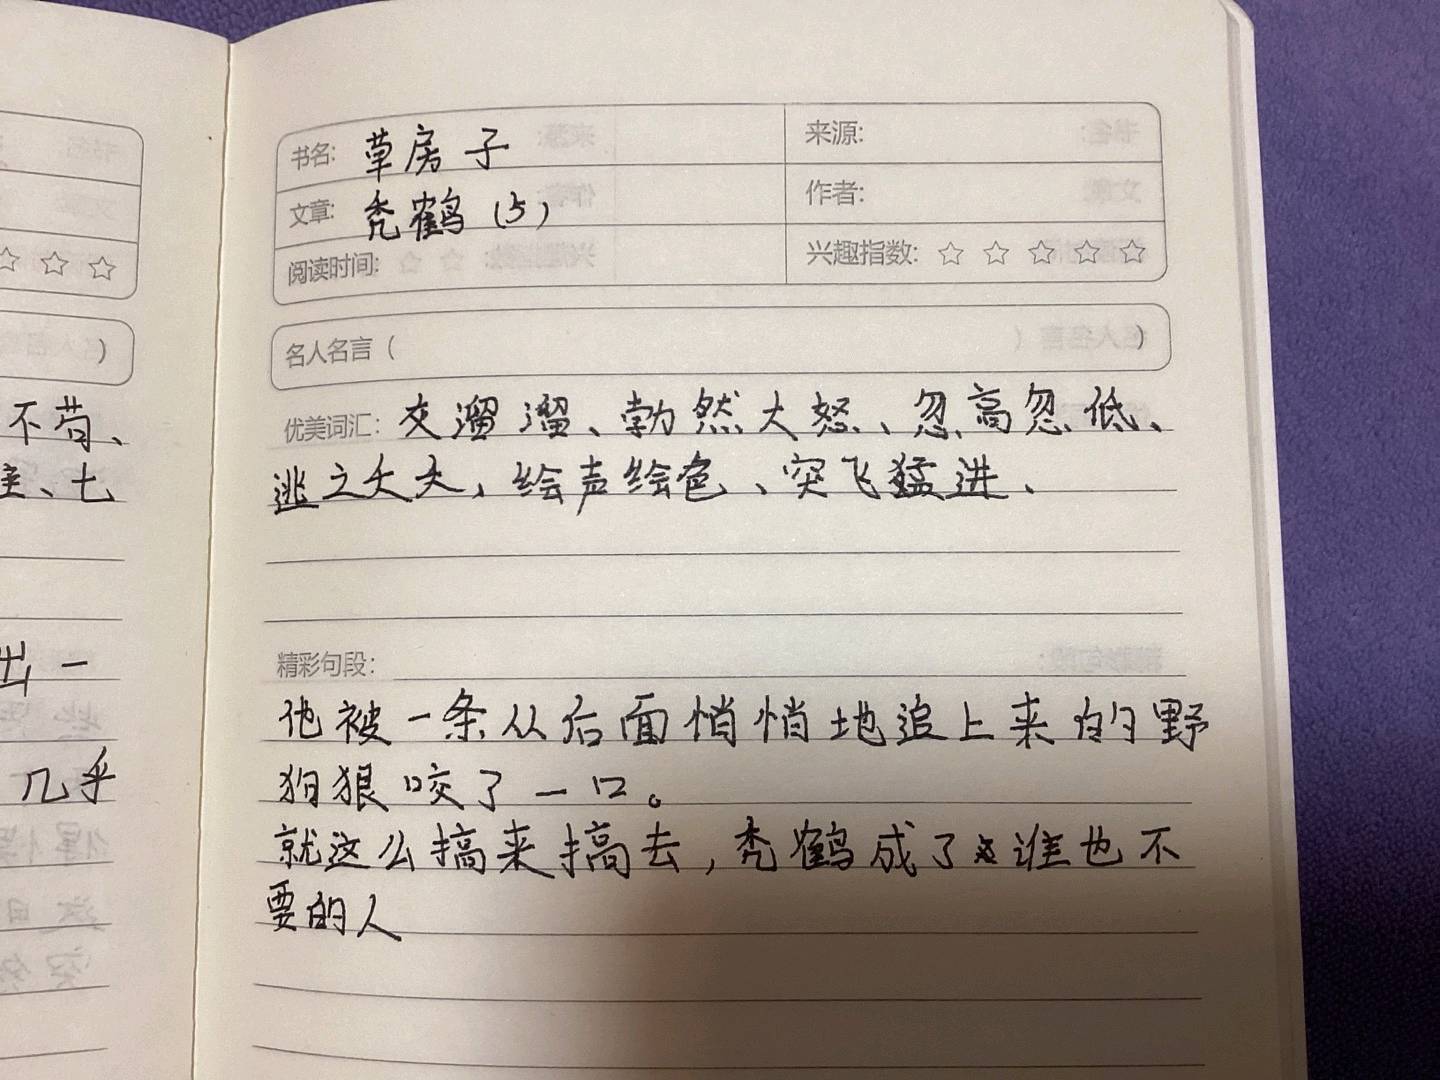 不苟、
、七
出一
几乎
书名: 草房子
来源:
文章: 秃鹤(5)
作者:
阅读时间:
兴趣指数: ☆ ☆ ☆ ☆ ☆
名人名言 ( )
优美词汇: 交溜溜、勃然大怒、忽高忽低、
逃之夭夭、绘声绘色、突飞猛进、
精彩句段:
他被一条从后面悄悄地追上来的野
狗狠咬了一口。
就这么搞来搞去,秃鹤成了谁也不
要的人